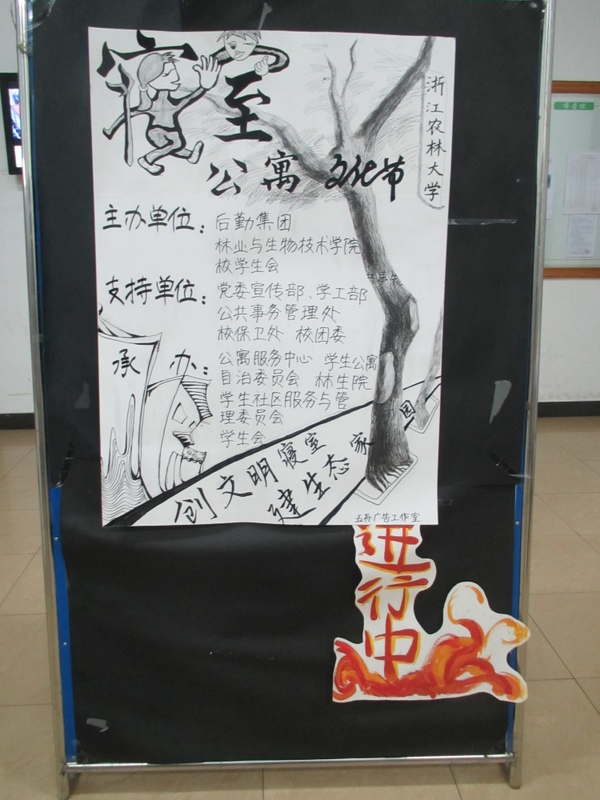 寝室
浙江农林大学
公寓 文化节
主办单位：后勤集团
林业与生物技术学院
校学生会
支持单位：党委宣传部、学工部
公共事务管理处
校保卫处 校团委
承办：公寓服务中心 学生公寓
自治委员会 林生院
学生社区服务与管
理委员会
学生会
创文明寝室
建生态家园
五舟广告工作室
进行中